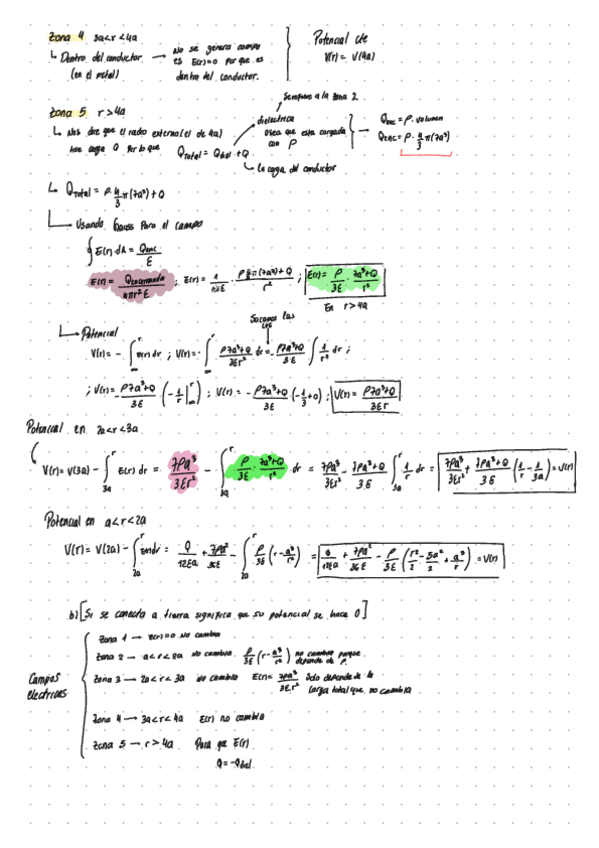 Zona 4 3a<r<4a
↳ Dentro del conductor (en el metal) → No se genera campo es E(r)=0 porque es dentro del conductor.
Potencial cte
V(r) = V(4a)
Zona 5 r>4a
↳ Nos dice que el radio external(el de 4a) tiene carga Q por lo que Q_total = Q_diel + Q
Se refiere a la zona 2
dielectrica osea que esta cargada con ρ
Q_enc = ρ · volumen
Q_enc = ρ · 4/3 π(7a³)
↳ la carga del conductor
↳ Q_total = ρ · 4/3 π(7a³) + Q
Usando Gauss para el campo
∮ E(r) dA = Q_enc/ε
E(r) = Q_encerrada/4πr²ε ;
E(r) = ρ/3ε · 7a³+Q/r²
En r>4a
Potencial
Sacamos las ctes
V(r) = - ∫_∞^r E(r) dr ; V(r) = - ∫_∞^r ρ7a³+Q/3εr² dr = - ρ7a³+Q/3ε ∫ 1/r² dr ;
; V(r) = - ρ7a³+Q/3ε (-1/r |_∞^r) ;
V(r) = ρ7a³+Q/3εr
Potencial en 2a<r<3a
V(r) = V(3a) - ∫_3a^r E(r) dr = 7ρa³/3εr² - ∫_3a^r ρ/3ε · 7a³+Q/r² dr = 7ρa³/3εr² - 7ρa³+Q/3ε ∫_3a^r 1/r dr = 7ρa³/3εr² + 7ρa³+Q/3ε (1/r - 1/3a) = V(r)
Potencial en a<r<2a
V(r) = V(2a) - ∫_2a^r E(r) dr = Q/12εa + 7ρa²/36ε - ∫_2a^r ρ/3ε (r - a³/r²) = Q/12εa + 7ρa²/36ε - ρ/3ε (r²/2 - 5a²/2 + a³/r) = V(r)
b) [Si se conecta a tierra significa que su potencial se hace 0]
Campos electricos
Zona 1 → E(r)=0 No cambia
Zona 2 → a<r<2a No cambia. ρ/3ε (r - a³/r²) no cambia porque depende de ρ.
Zona 3 → 2a<r<3a No cambia E(r) = 7ρa³/3εr² Solo depende de la carga total que no cambia
Zona 4 → 3a<r<4a E(r) no cambia
Zona 5 → r>4a Para que E(r)
Q = -Q_diel